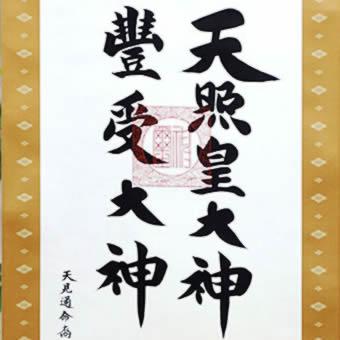 天照皇大神
豐受大神
天見通命裔